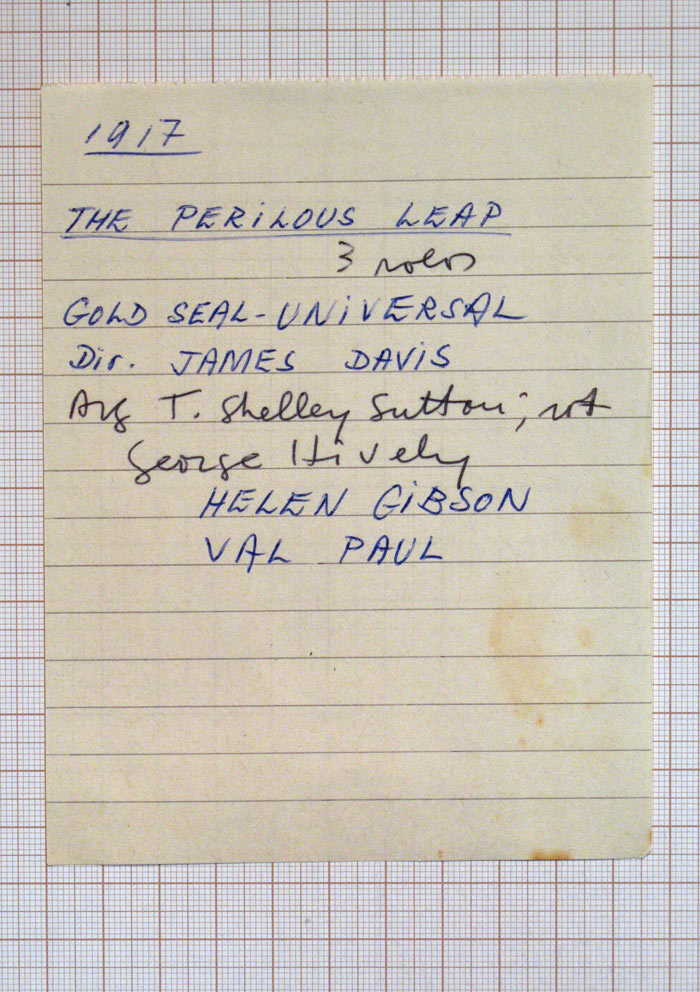 1917
THE PERiLOUS LEAP
3 rolos
GOLD SEAL-UNiVERSAL
Dir. JAMES DAVIS
Arg T. Shelley Sutton; rot
George Hively
HELEN GiBSON
VAL PAUL